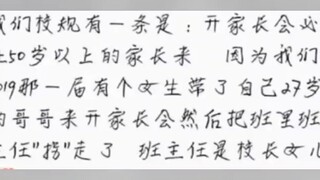 们校规有一条是：开家长会必
50岁以上的家长来 因为我们
019那一届有个女生带了自己27岁
的哥哥来开家长会然后把班里班
主任"拐"走了 班主任是校长女儿